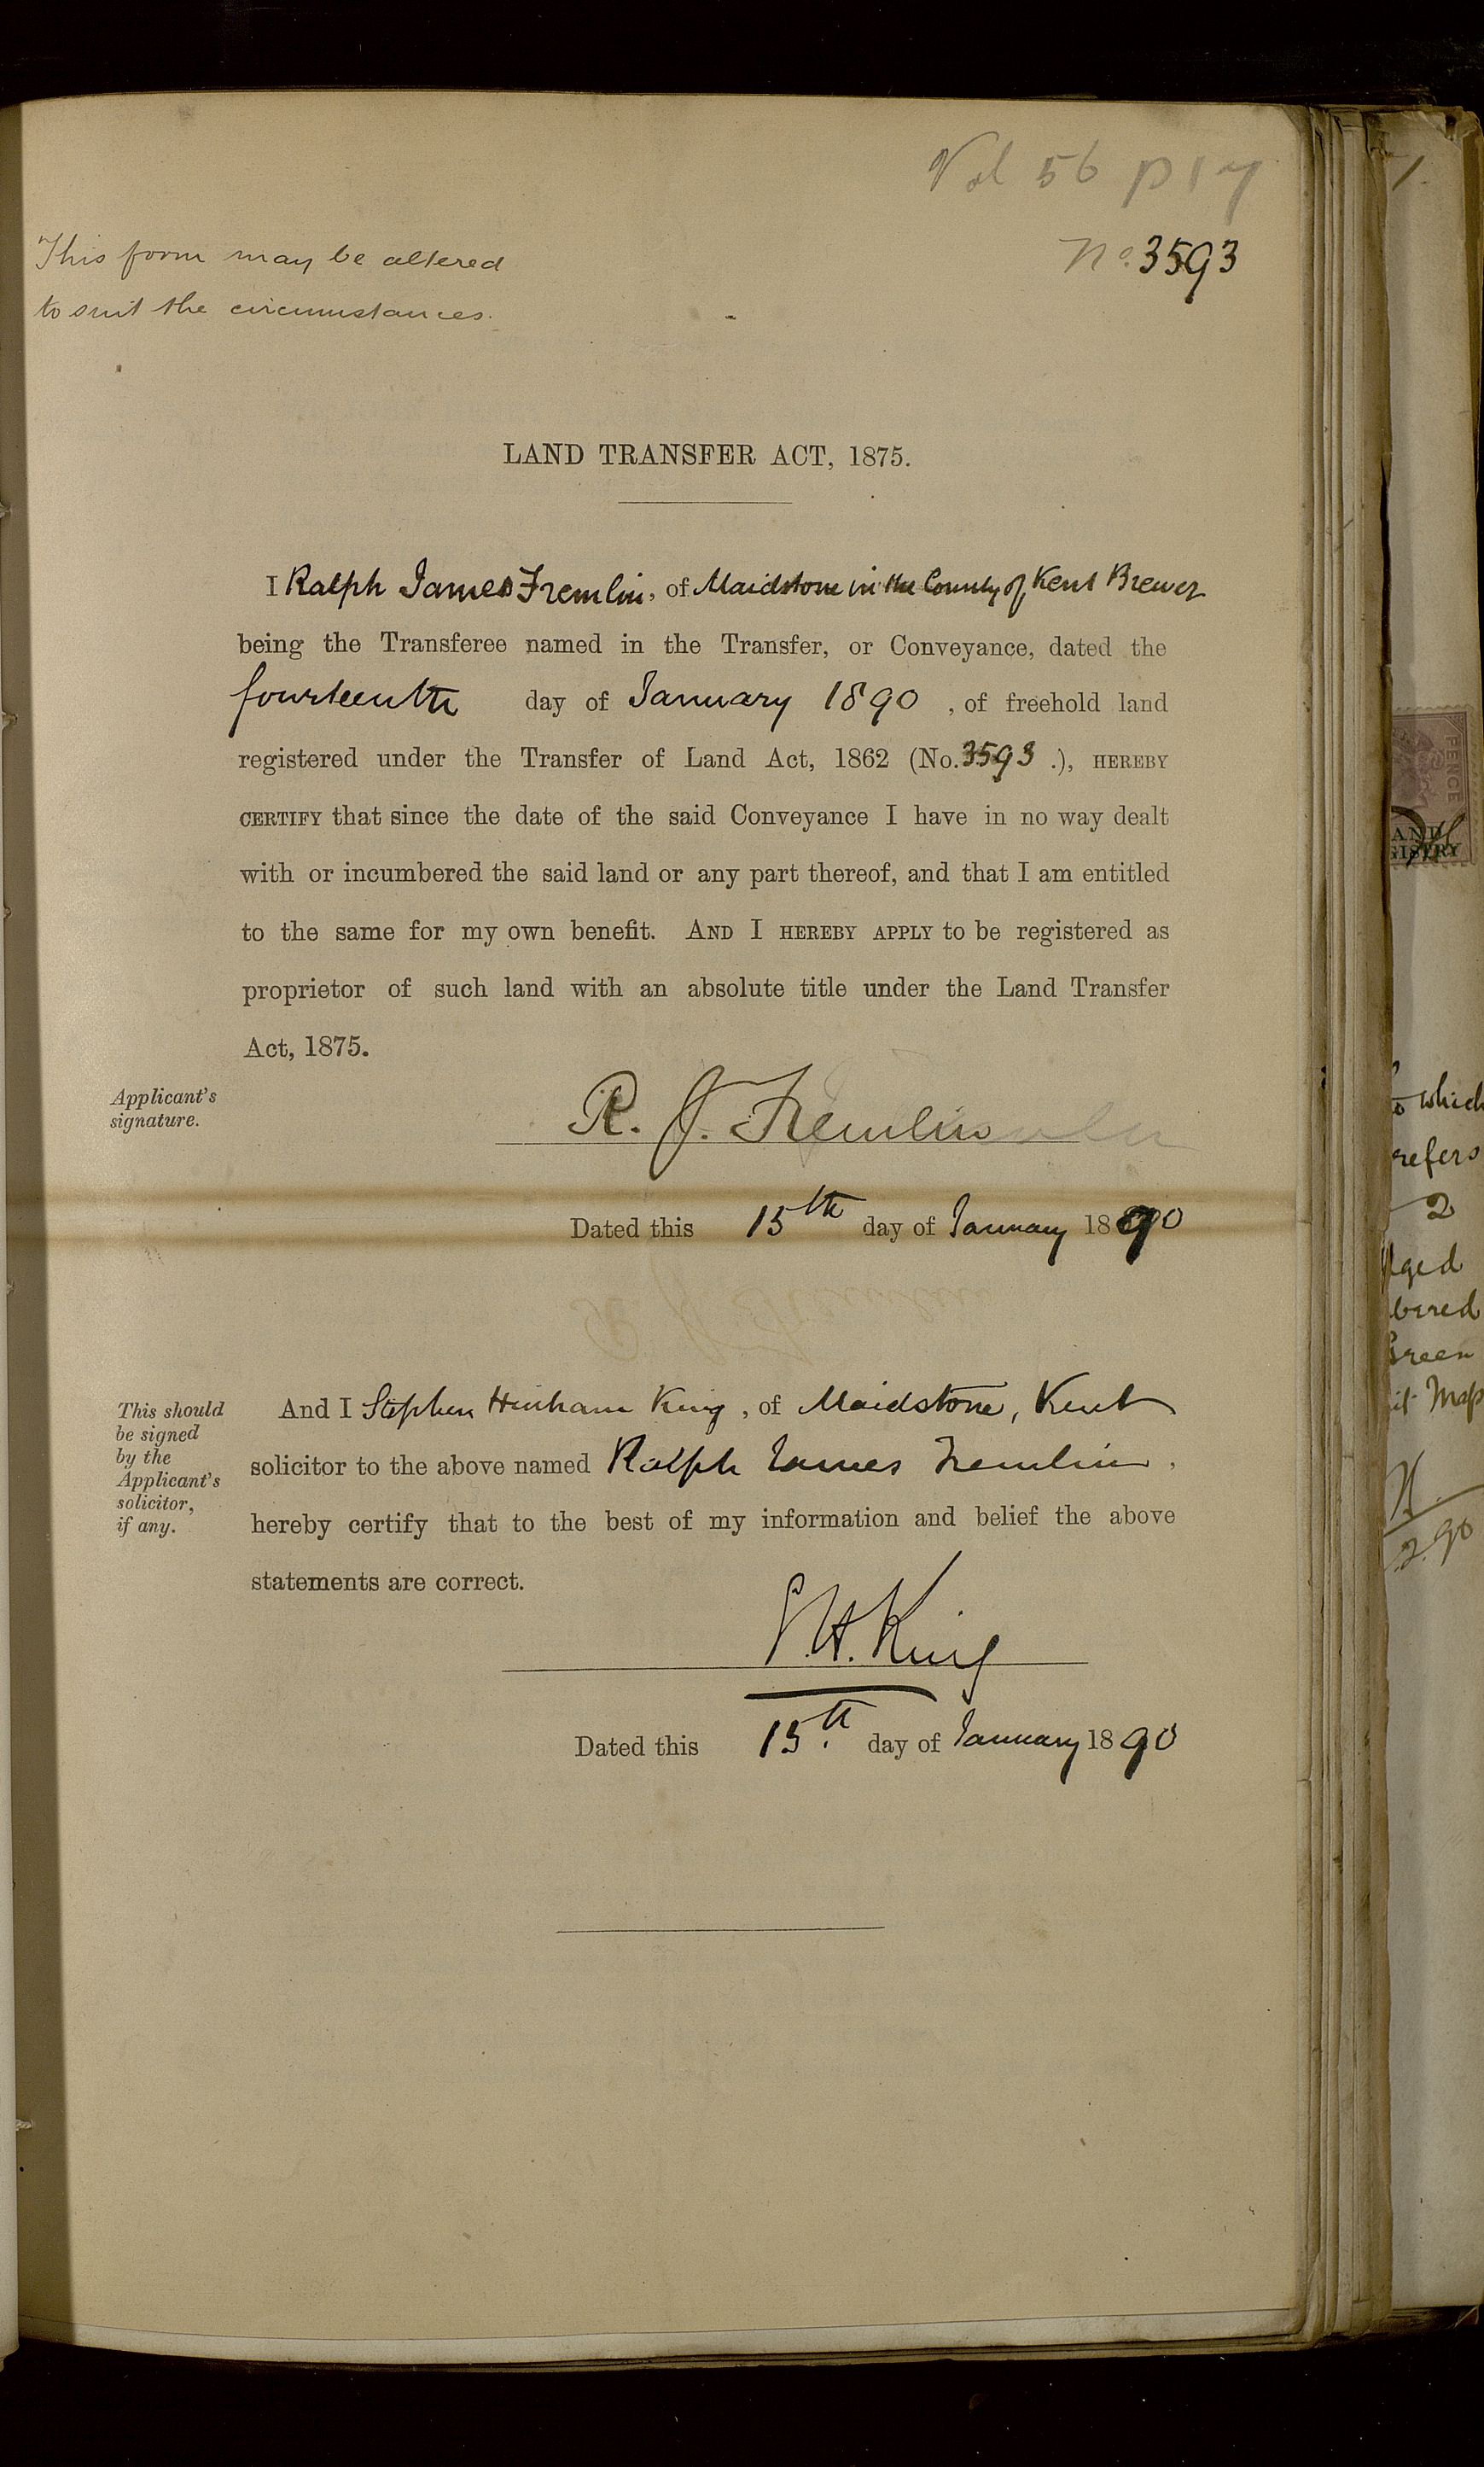 Vol 56 p 17
No. 3593
This form may be altered
to suit the circumstances.
LAND TRANSFER ACT, 1875.
I Ralph James Fremlin, of Maidstone in the County of Kent Brewer
being the Transferee named in the Transfer, or Conveyance, dated the
fourteenth day of January 1890 , of freehold land
registered under the Transfer of Land Act, 1862 (No. 3593 .), HEREBY
CERTIFY that since the date of the said Conveyance I have in no way dealt
with or incumbered the said land or any part thereof, and that I am entitled
to the same for my own benefit. AND I HEREBY APPLY to be registered as
proprietor of such land with an absolute title under the Land Transfer
Act, 1875.
Applicant's
signature.
R. J. Fremlin
Dated this 15th day of January 1890
This should
be signed
by the
Applicant's
solicitor,
if any.
And I Stephen King, of Maidstone, Kent
solicitor to the above named Ralph James Fremlin,
hereby certify that to the best of my information and belief the above
statements are correct.
S. H. King
Dated this 15th day of January 1890
PENCE
which
refers
2
Green
Map